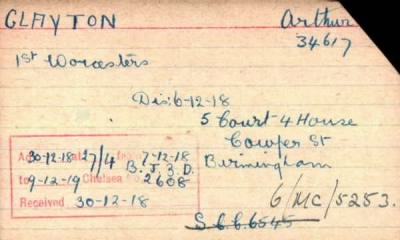 CLAYTON Arthur
34617
1st Worcesters
Dis: 6-12-18
5 Court 4 House
Cowper St
Birmingham
30-12-18 27/4 7-12-18
B.J.3.D.
to 9-12-19 Chelsea No. 2608
Received 30-12-18
6/MC/5253.
S.C.C.6545